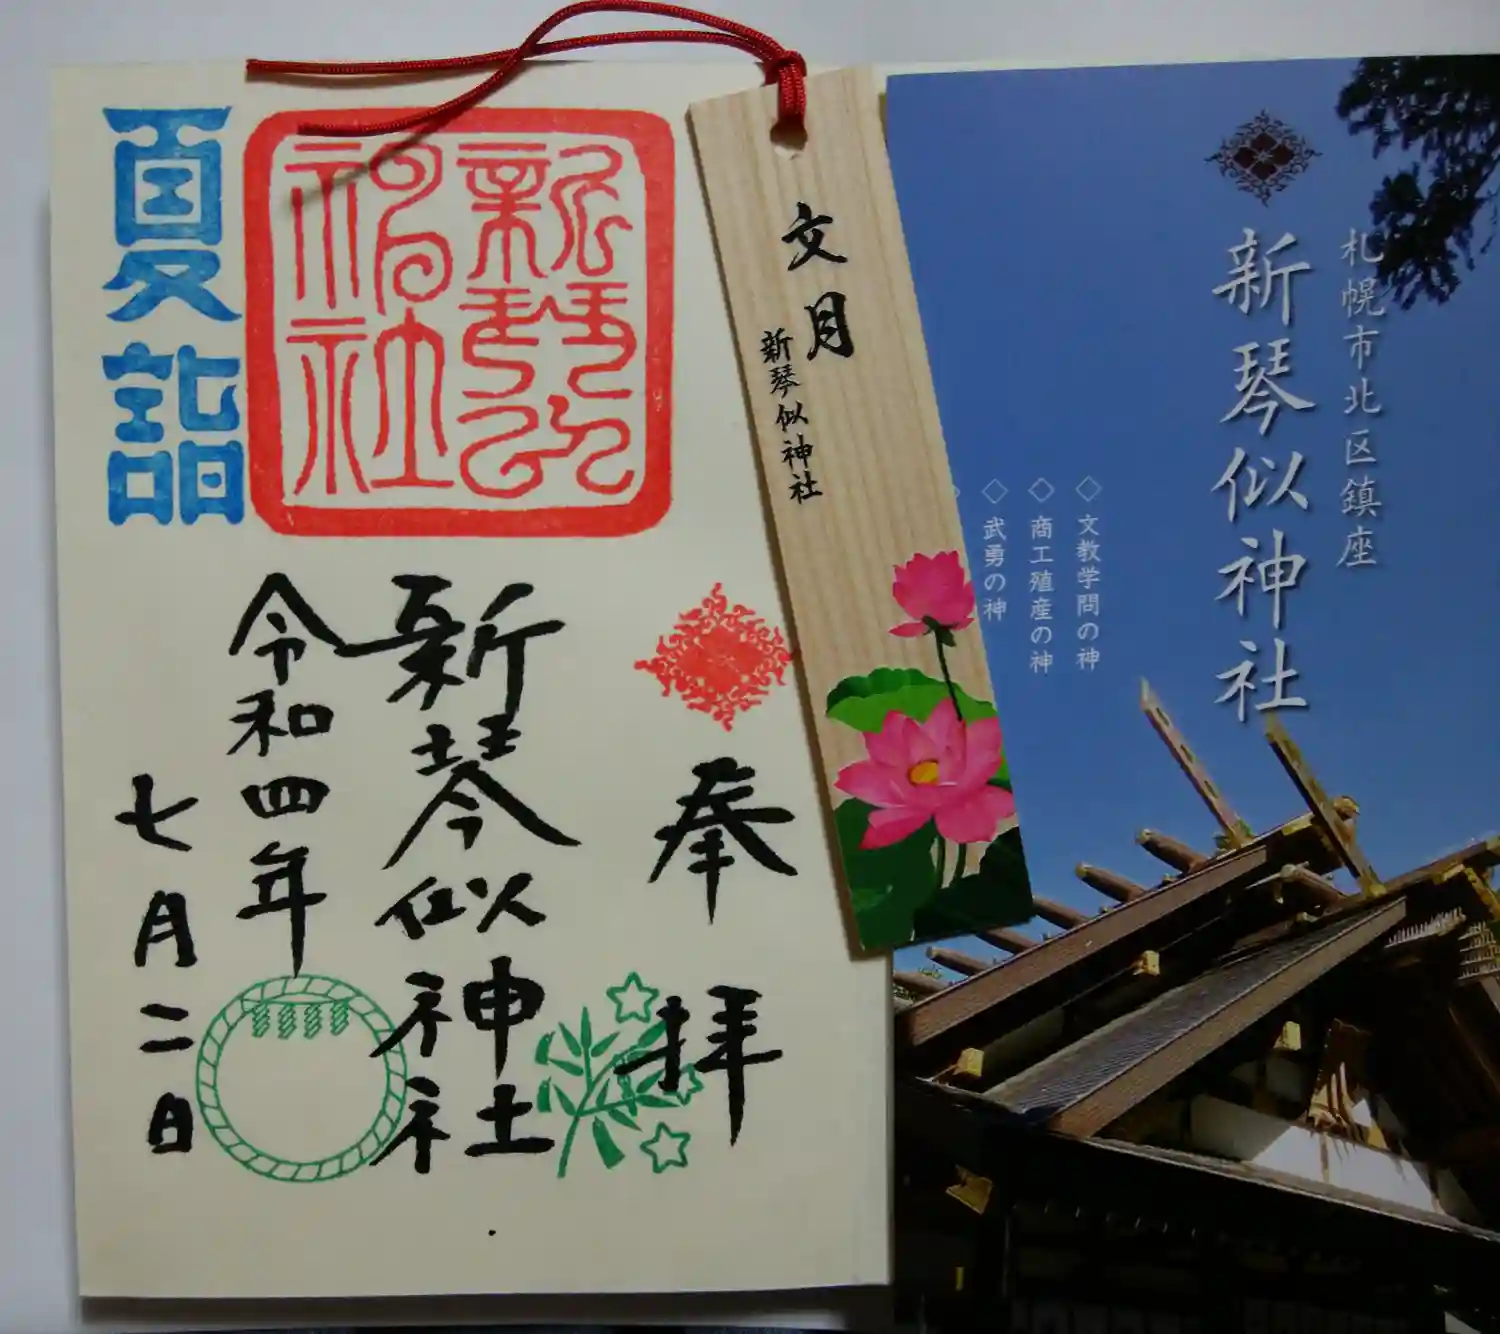 奉拝
新琴似神社
令和四年
七月二日
夏詣
新琴似神社
文月
新琴似神社
札幌市北区鎮座
新琴似神社
◇文教学問の神
◇商工殖産の神
◇武勇の神